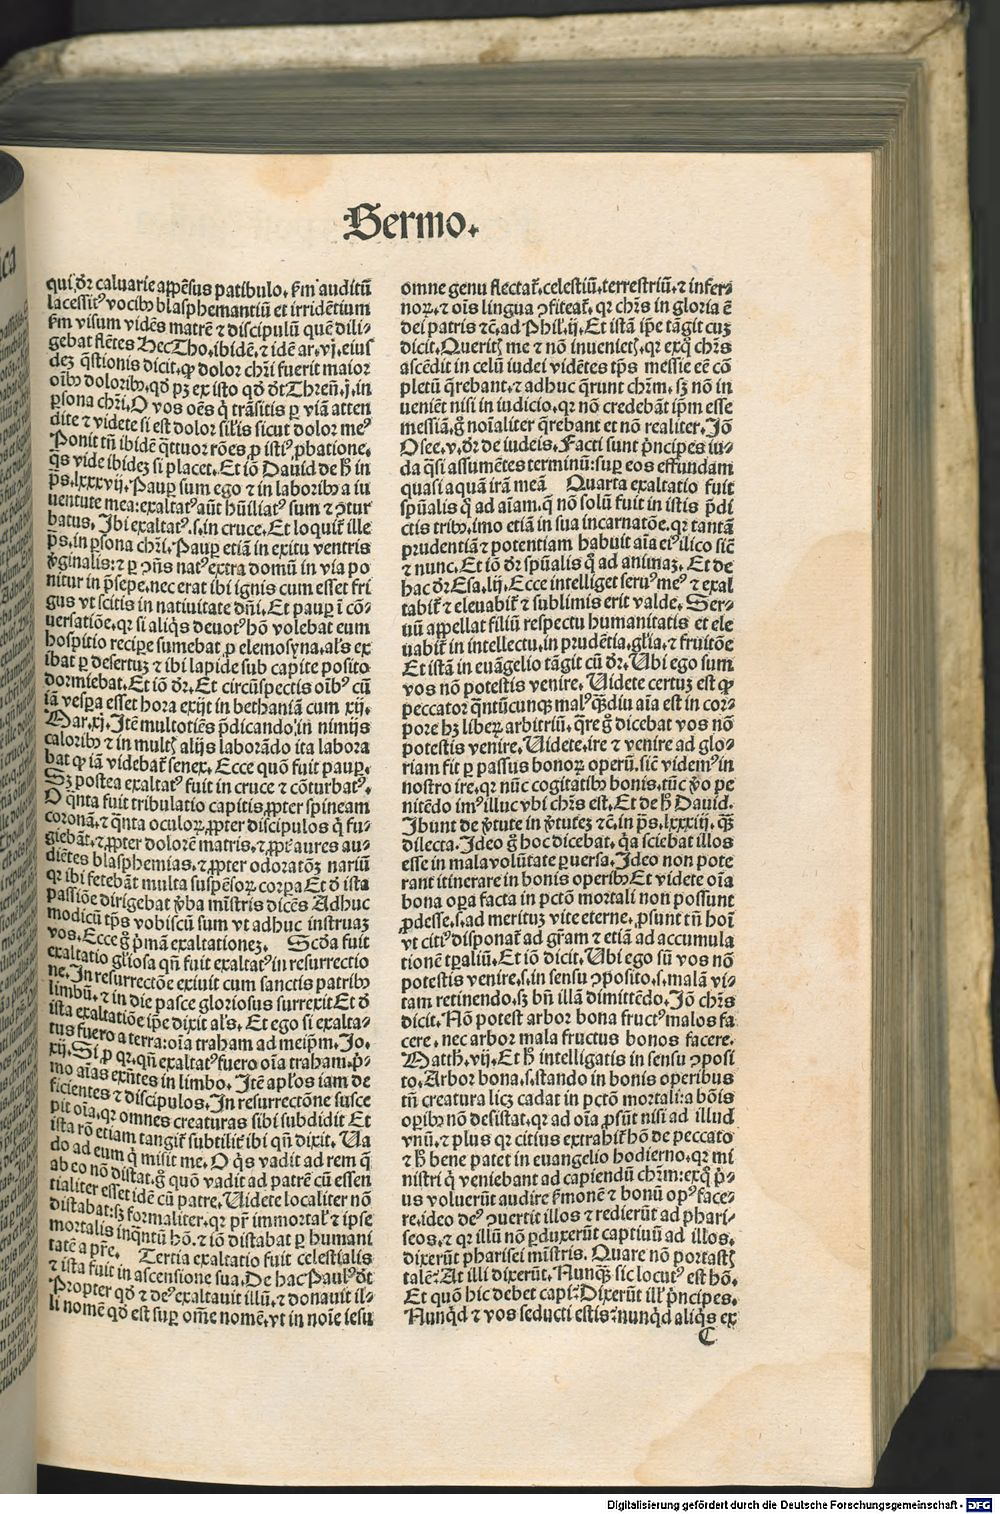 Sermo.
qui dr̄ caluarie appēsus patibulo. k̄m auditū
lacessitꝰ vocibꝫ blasphemantiū et irridētium
k̄m visum vidēs matrē ⁊ discipulū quē dili⸗
gebat flētes Hec Tho. ibidē. ⁊ idē ar. vj. eius
deꝫ q̄stionis dicit. ꝙ dolor chr̄i fuerit maior
oībꝫ doloribꝫ. qđ pꝫ ex isto qđ dr̄ Thren̄. j. in
ꝑsona chr̄i. O vos oēs q̇ trāsitis ꝑ viā atten
dite ⁊ videte si est dolor sil̄is sicut dolor meꝰ
Ponit tn̄ ibidē q̄ttuor rōes ꝓ istiꝰ ꝓbatione.
q̄s vide ibideꝫ si placet. Et iō Dauid de h̄ in
p̄s. lxxxvij. Pauꝑ sum ego ⁊ in laboribꝫ a iu
uentute mea: exaltatꝰ aūt hūiliatꝰ sum ⁊ ꝯtur
batus. Ibi exaltatꝰ .s. in cruce. Et loquit̄ ille
p̄s. in ꝑsona chr̄i. Pauꝑ etiā in exitu ventris
v̄ginalis: ⁊ ꝑ ꝯn̄s natꝰ extra domū in via po
nitur in p̄sepe. nec erat ibi ignis cum esset fri
gus vt scitis in natiuitate dn̄i. Et pauꝑ ī cō⸗
uersatiōe. qꝛ si aliq̇s deuotꝰ hō volebat eum
hospitio reciꝑe sumebat ꝓ elemosyna. al̄s ex
ibat ꝑ desertuꝫ ⁊ ibi lapide sub capite posito
dormiebat. Et iō dr̄. Et circūspectis oībꝰ cū
iā vesꝑa esset hora exijt in bethaniā cum xij.
Mar. xj. Itē multotiēs p̄dicando in nimijs
caloribꝫ ⁊ in multꝭ alijs laborādo ita labora
bat ꝙ iā videbat̄ senex. Ecce quō fuit pauꝑ.
Sꝫ postea exaltatꝰ fuit in cruce ⁊ cōturbatꝰ.
O q̄nta fuit tribulatio capitis ꝓpter spineam
coronā. ⁊ q̄nta oculoꝝ ꝓpter discipulos q̇ fu⸗
giebāt. ⁊ ꝓpter dolorē matris. ⁊ ꝓpt̄ aures au⸗
diētes blasphemias. ⁊ ꝓpter odoratōꝫ nariū
qꝛ ibi fetebāt multa suspēsoꝝ corꝑa Et đ ista
passiōe dirigebat v̄ba mīstris dicēs Adhuc
modicū tp̄s vobiscū sum vt adhuc instruaꝫ
vos. Ecce ḡ p̄mā exaltationeꝫ. Scđa fuit
exaltatio gl̄iosa qn̄ fuit exaltatꝰ in resurrectio
ne. In resurrectōe exiuit cum sanctis patribꝫ
limbū. ⁊ in die pasce gloriosus surrexit Et đ
ista exaltatiōe ip̄e dixit al̄s. Et ego si exalta⸗
tus fuero a terra: oīa traham ad meip̄m. Jo.
xij. Si ꝓ qꝛ. qn̄ exaltatꝰ fuero oīa traham. p̄⸗
mo aīas exn̄tes in limbo. Itē apl̄os iam de
ficientes ⁊ discipulos. In resurrectōne susce
pit oīa. qꝛ omnes creaturas sibi subdidit Et
ista rō etiam tangit̄ subtilit̄ ibi qn̄ dixit. Ua
do ad eum q̇ misit me. O q̇s vadit ad rem q̄
ab eo nō distat. ḡ quō vadit ad patrē cū essen
tialiter esset idē cū patre. Uidete localiter nō
distabat: sꝫ formaliter. qꝛ pr̄ immortal̄ ⁊ ipse
mortalis inq̄ntū hō. ⁊ iō distabat ꝑ humani
tatē a pr̄e. Tertia exaltatio fuit celestialis
⁊ ista fuit in ascensione sua. De hac Paulꝰ đt
Propter qđ ⁊ deꝰ exaltauit illū. ⁊ donauit il⸗
li nomē qđ est suꝑ om̄e nomē. vt in noīe iesu
omne genu flectat̄. celestiū. terrestriū. ⁊ infer⸗
noꝝ. ⁊ oīs lingua ꝯfiteat̄. qꝛ chr̄s in gloria ē
dei patris ⁊c̄. ad Phil̄. ij. Et istā ip̄e tāgit cuꝫ
dicit. Queritꝭ me ⁊ nō inuenietꝭ. qꝛ exq̊ chr̄s
ascēdit in celū iudei vidētes tp̄s messie eē cō
pletū q̄rebant. ⁊ adhuc q̄runt chr̄m. sꝫ nō in
ueniēt nisi in iudicio. qꝛ nō credebāt ip̄m esse
messiā. ḡ noīaliter q̄rebant et nō realiter. Iō
Osee. v. dr̄ de iudeis. Facti sunt p̄ncipes iu⸗
da q̄si assumētes terminū: suꝑ eos effundam
quasi aquā irā meā Quarta exaltatio fuit
spūalis q̊ ad aīam. q̄ nō solū fuit in istis p̄di
ctis tribꝫ. imo etiā in sua incarnatōe. qꝛ tantā
prudentiā ⁊ potentiam habuit aīa eiꝰ ilico sic̄
⁊ nunc. Et iō dr̄ spūalis q̊ ad animaꝫ. Et de
hac dr̄ Esa. lij. Ecce intelliget seruꝰ meꝰ ⁊ exal
tabit̄ ⁊ eleuabit̄ ⁊ sublimis erit valde. Ser⸗
uū appellat filiū respectu humanitatis et ele
uabit̄ in intellectu. in prudētia. gl̄ia. ⁊ fruitōe
Et istā in euāgelio tāgit cū dr̄. Ubi ego sum
vos nō potestis venire. Uidete certuꝫ est ꝙ
peccator q̄ntūcunqꝫ malꝰ q̄diu aīa est in cor⸗
pore hꝫ liberꝝ arbitriū. q̄re ḡ dicebat vos nō
potestis venire. Uidete. ire ⁊ venire ad glo⸗
riam fit ꝑ passus bonoꝝ operū. sic̄ videmꝰ in
nostro ire. qꝛ nūc cogitatibꝫ bonis. tūc v̊o pe
nitēdo imꝰ illuc vbi chr̄s est. Et de h̄ Dauid.
Ibunt de v̄tute in v̄tuteꝫ ⁊c̄. in p̄s. lxxxiij. q̄ꝫ
dilecta. Ideo ḡ hoc dicebat. q̇a sciebat illos
esse in mala volūtate ꝑuersa. Ideo non pote
rant itinerare in bonis operibꝫ Et videte oīa
bona oꝑa facta in pctō mortali non possunt
ꝓdesse .s. ad merituꝫ vite eterne. ꝓsunt tn̄ hoī
vt citiꝰ disponat̄ ad gr̄am ⁊ etiā ad accumula
tionē tꝑaliū. Et iō dicit. Ubi ego sū vos nō
potestis venire .s. in sensu ꝯposito .s. malā vi⸗
tam retinendo. sꝫ bn̄ illā dimittēdo. Iō chr̄s
dicit. Nō potest arbor bona fructꝰ malos fa
cere. nec arbor mala fructus bonos facere.
Matth. vij. Et h̄ intelligatis in sensu ꝯposi
to. Arbor bona .s. stando in bonis operibus
tn̄ creatura licꝫ cadat in pctō mortali: a bōis
oꝑibꝫ nō desistat. qꝛ ad oīa ꝓsūt nisi ad illud
vnū. ⁊ plus qꝛ citius extrahit̄ hō de peccato
⁊ h̄ bene patet in euangelio hodierno. qꝛ mi
nistri q̇ veniebant ad capiendū chr̄m: exq̊ p̄⸗
us voluerūt audire k̄monē ⁊ bonū opꝰ face⸗
re. ideo deꝰ ꝯuertit illos ⁊ redierūt ad phari⸗
seos. ⁊ qꝛ illū nō ꝑduxerūt captiuū ad illos.
dixerūt pharisei mīstris. Quare nō portastꝭ
talē? At illi dixerūt. Nunqꝫ sic locutꝰ est hō.
Et quō hic debet capi? Dixerūt ill̄ p̄ncipes.
Nunq̇d ⁊ vos seducti estis? nunq̇d aliq̇s ex
C
Digitalisierung gefördert durch die Deutsche Forschungsgemeinschaft - DFG